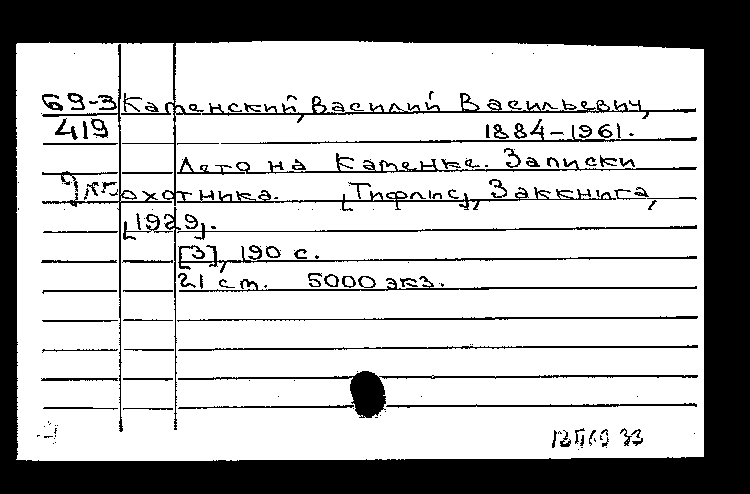 69-3 Каменский, Василий Васильевич,
419 1884-1961.
Лето на Каменке. Записки
охотника. [Тифлис], Заккнига,
[1929].
[3], 190 с.
21 ст. 5000 экз.